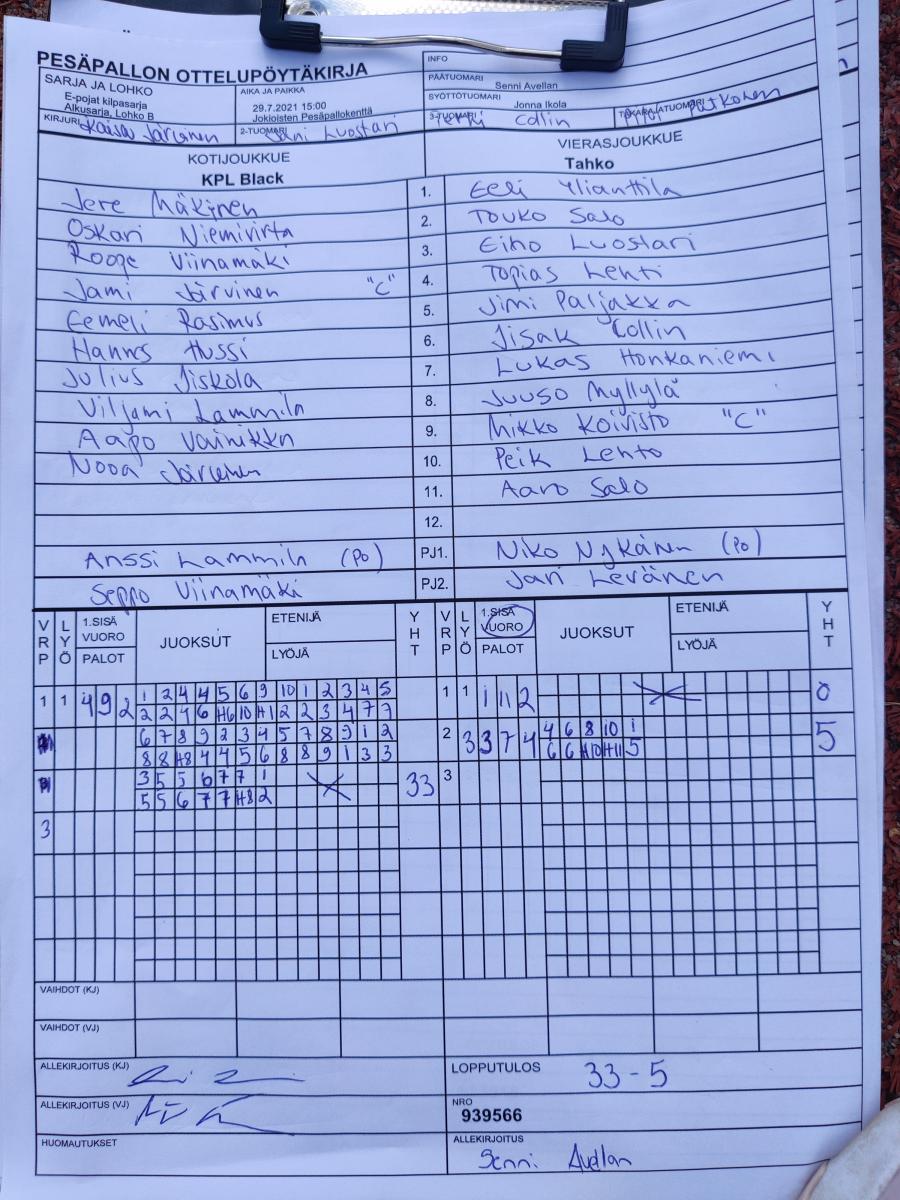 PESÄPALLON OTTELUPÖYTÄKIRJA
SARJA JA LOHKO
E-pojat kilpasarja
Alkusarja, Lohko B
AIKA JA PAIKKA
29.7.2021 15:00
Jokioisten Pesäpallokenttä
INFO
PÄÄTUOMARI
Senni Avellan
SYÖTTÖTUOMARI
Jonna Ikola
KIRJURI Kaisa Järvinen
2-TUOMARI Jani Luostari
3-TUOMARI Collin
TAKARAJATUOMARI Pitkonen
KOTIJOUKKUE
KPL Black
VIERASJOUKKUE
Tahko
Jere Mäkinen 1. Eeli Ylianttila
Oskari Niemivirta 2. Touko Salo
Rooge Viinamäki 3. Eino Luostari
Jami Järvinen "C" 4. Topias Lehti
Eemeli Rasimus 5. Jimi Paljakka
Hannes Hussi 6. Iisak Collin
Julius Iiskola 7. Lukas Honkaniemi
Viljami Lammila 8. Juuso Myllylä
Aapo Vainikka 9. Mikko Koivisto "C"
Nooa Järvinen 10. Peik Lehto
11. Aaro Salo
12.
Anssi Lammila (PO) PJ1. Niko Nykänen (PO)
Seppo Viinamäki PJ2. Jari Levänen
VRP LYÖ 1.SISÄ VUORO PALOT JUOKSUT ETENIJÄ LYÖJÄ YHT VRP LYÖ 1.SISÄ VUORO PALOT JUOKSUT ETENIJÄ LYÖJÄ YHT
1 1 4 9 2 1 2 4 4 5 6 9 10 1 2 3 4 5 1 1 1 11 2 0
2 2 4 6 H6 10 H1 2 2 3 4 7 7
6 7 8 9 2 3 4 5 7 8 9 1 2 2 3 3 7 4 4 6 8 10 1 5
8 8 H8 4 4 5 6 8 8 9 1 3 3 6 6 H10 H11 5
3 5 5 6 7 7 1 33 3
5 5 6 7 7 H8 2
3
VAIHDOT (KJ)
VAIHDOT (VJ)
ALLEKIRJOITUS (KJ)
LOPPUTULOS 33-5
ALLEKIRJOITUS (VJ)
NRO
939566
HUOMAUTUKSET
ALLEKIRJOITUS
Senni Avellan